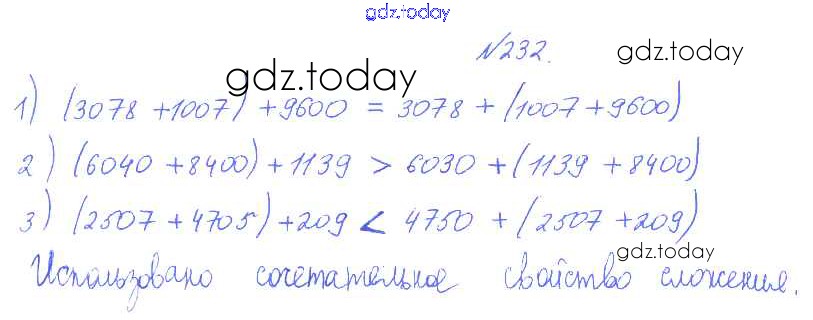 gdz.today
№232.
gdz.today
gdz.today
1) (3078 + 1007) + 9600 = 3078 + (1007 + 9600)
2) (6040 + 8400) + 1139 > 6030 + (1139 + 8400)
3) (2507 + 4705) + 209 < 4750 + (2507 + 209)
gdz.today
Использовано сочетательное свойство сложения.